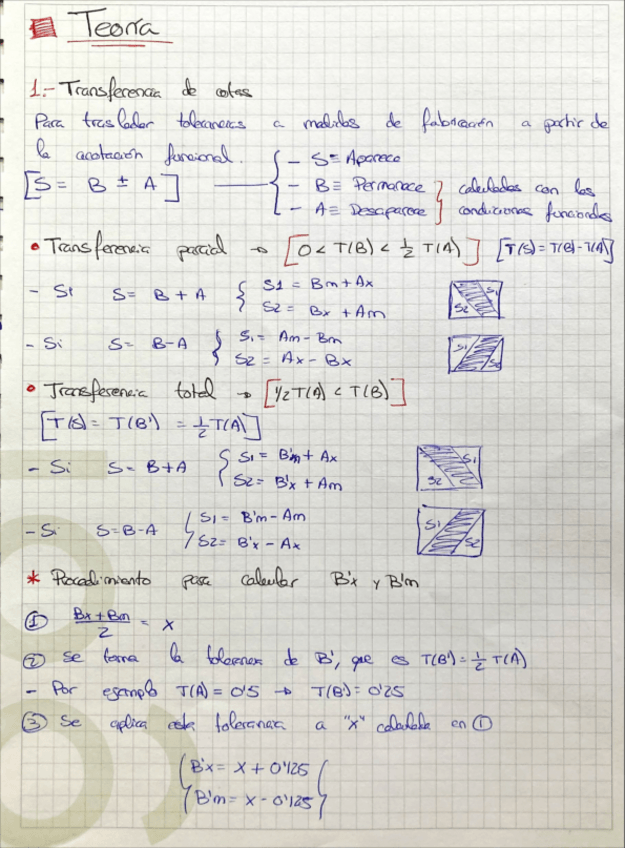 Teoría
1.- Transferencia de cotas
Para trasladar tolerancias a medidas de fabricación a partir de
la acotación funcional.
- S ≡ Aparece
[S = B ± A] - B ≡ Permanece } calculadas con las
- A ≡ Desaparece } condiciones funcionales
• Transferencia parcial → [0 < T(B) < ½ T(A)] [T(S) = T(B) - T(A)]
- Si S = B + A { S1 = Bm + Ax
S2 = Bx + Am
S2 S1
- Si S = B - A { S1 = Am - Bm
S2 = Ax - Bx
S1 S2
• Transferencia total → [1/2 T(A) < T(B)]
[T(S) = T(B') = ½ T(A)]
- Si S = B + A { S1 = B'm + Ax
S2 = B'x + Am
S1
S2
- Si S = B - A { S1 = B'm - Am
S2 = B'x - Ax
S1 S2
* Procedimiento para calcular B'x y B'm
① Bx + Bm / 2 = x
② Se toma la tolerancia de B', que es T(B') = ½ T(A)
- Por ejemplo T(A) = 0'5 → T(B') = 0'25
③ Se aplica esta tolerancia a "x" calculada en ①
{ B'x = x + 0'125
B'm = x - 0'125 }